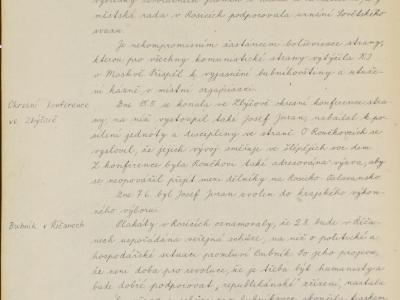 městská rada v Rosicích podporovala uznání Sovětského
svazu.
Je nekompromisním zastáncem bolševisace strany,
kterou pro všechny komunistické strany vytýčila KI
v Moskvě. Přispěl k vyjasnění bubníkovštiny a utuže-
ní kázně v místní organisaci.
Okresní konference
ve Zbýšově
Dne 19.5. se konala ve Zbýšově okresní konference stra-
ny, na níž vystoupil také Josef Juran, nabádal k po-
silení jednoty a disciplíny ve straně. O Roučkovcích se
vyslovil, že jejich vývoj směřuje ve šlépějích soc. dem.
Z konference byla Roučkovi také adresována výzva, aby
se neopovážil přijít mezi dělníky na Rosicko-Oslavansko.
Dne 7.6. byl Josef Juran zvolen do krajského výkon-
ného výboru.
Bubník v Říčanech
Plakáty v Rosicích oznamovaly, že 2.8. bude v Říča-
nech uspořádána veřejná schůze, na níž o politické a
hospodářské situaci promluví Bubník. Po jeho projevu,
že není doba pro revoluce, že je třeba být humanisty a
bude dobré podporovat „republikánské" zřízení, nastala